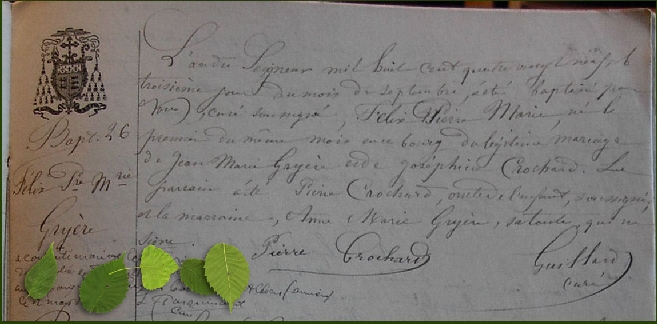 L'an du Seigneur mil huit cent quatre vingt neuf, le
troisième jour du mois de septembre, a été baptisé par
Nous, curé soussigné, Félix Pierre Marie, né le
premier du même mois en ce bourg du légitime mariage
de Jean Marie Gryère et de Joséphine Crochard. Le
parrain a été Pierre Crochard, oncle de l'enfant, soussigné,
et la marraine, Anne Marie Gryère, sa tante, qui ne
signe.
Pierre Crochard
Guillard
curé
Bapt. 26
Félix Pre Mrie
Gryère